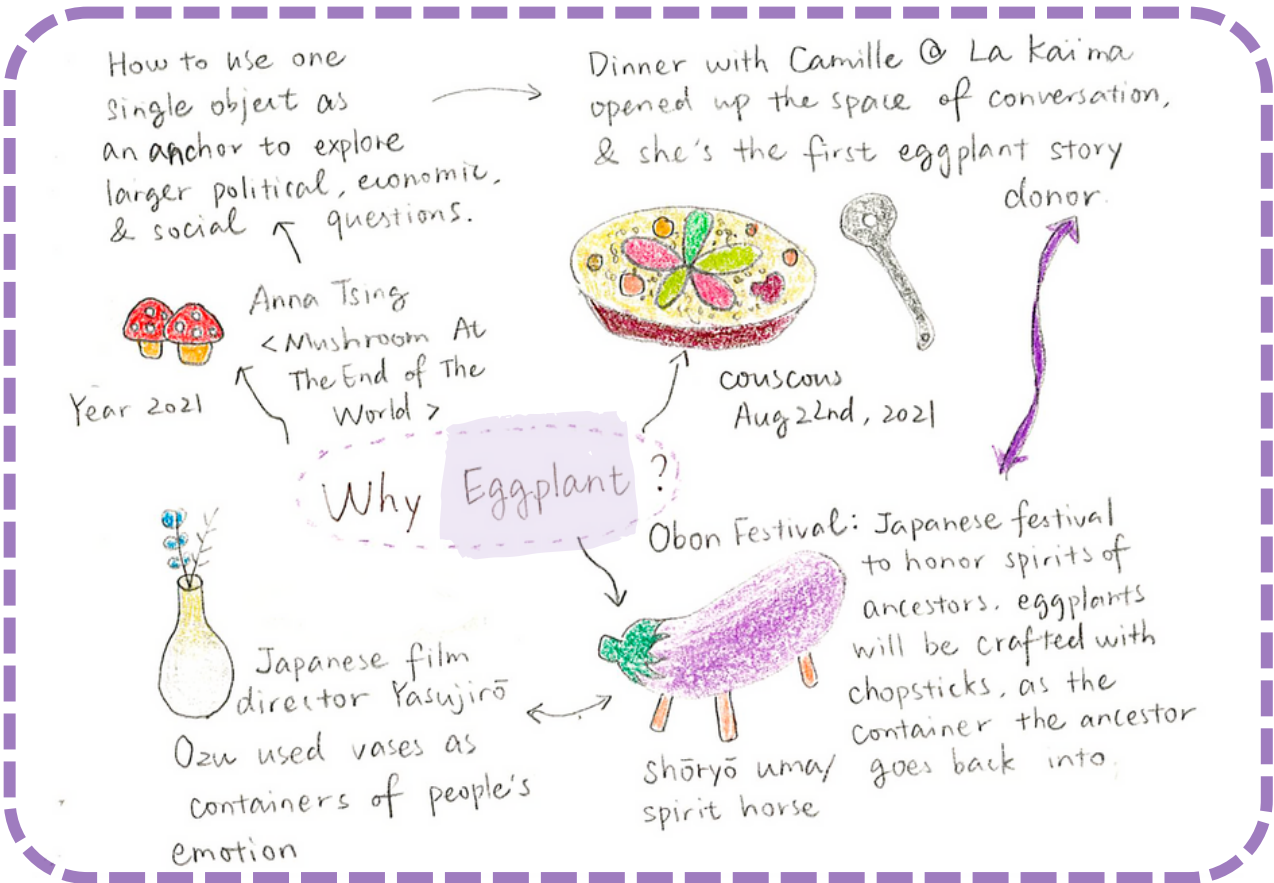 How to use one
single object as
an anchor to explore
larger political, economic,
& social questions.
Dinner with Camille @ La Kaïma
opened up the space of conversation,
& she's the first eggplant story
donor.
Anna Tsing
<Mushroom At
The End of The
World>
Year 2021
couscous
Aug 22nd, 2021
Why Eggplant ?
Obon Festival: Japanese festival
to honor spirits of
ancestors. eggplants
will be crafted with
chopsticks, as the
container the ancestor
goes back into.
Shōryō uma/
spirit horse
Japanese film
director Yasujirō
Ozu used vases as
containers of people's
emotion